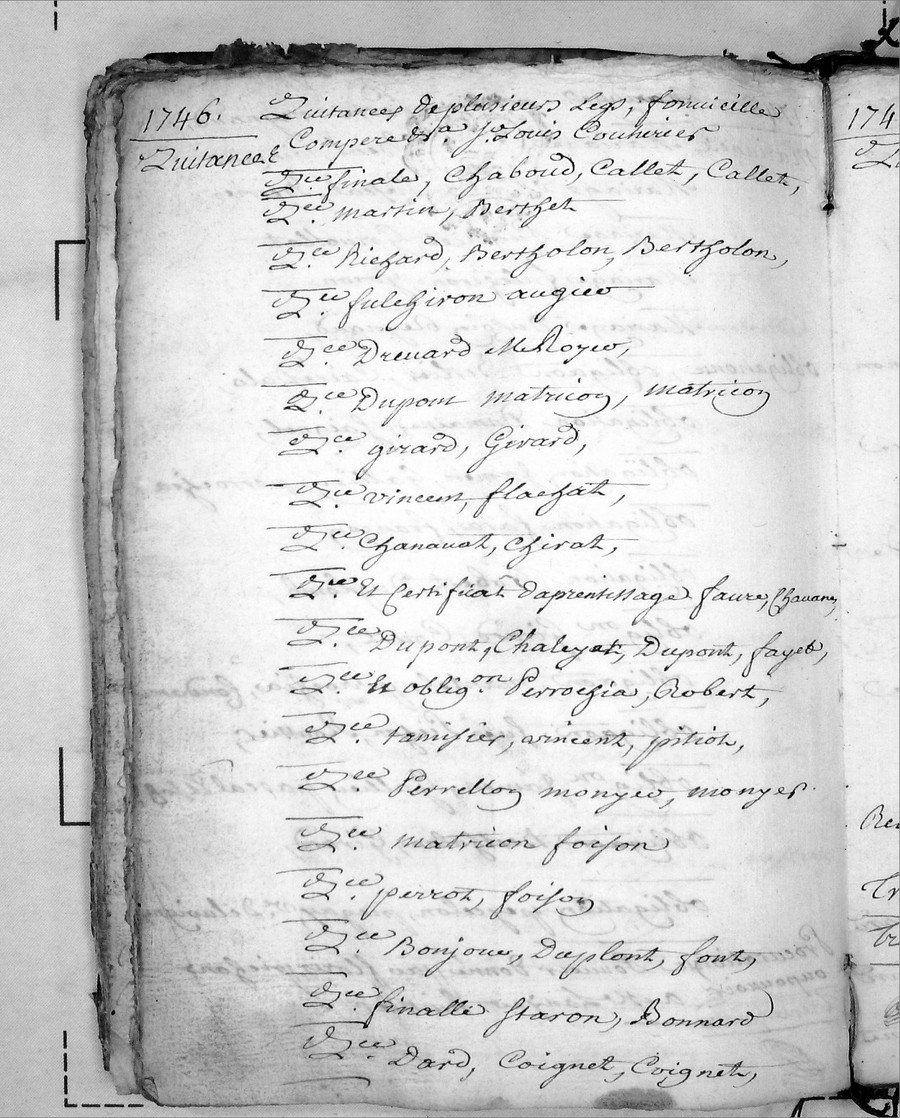 1746. Quitances de plusieurs Legs, fonvieille
Quitances Compere & a St. Louis Couherier
Qce finale, Chaboud, Callet, Callet,
Qce. martin, Berthet
Qce Richard, Bertholon, Bertholon,
Qce fulchiron augier
Qce Drevard Royer,
Qce Dupont matricon, matricon
Qce. girard, Girard,
Qce vincent, flachat,
Qce. Chanavat, Chirat,
Qce. Et Certificat d'aprentissage faure, Chavane,
Qce Dupont, Chaleyat, Dupont, fayet,
Qce Et oblig.on Perrochia, Robert,
Qce. tamisier, vincent, pitiot,
Qce. Perrellon monyer, monyer.
Qce. matricon foison
Qce. perrot, foison
Qce. Bonjour, Duplont, font,
Qce. finalle staron, Bonnard
Qce. Dard, Coignet, Coignet,
174